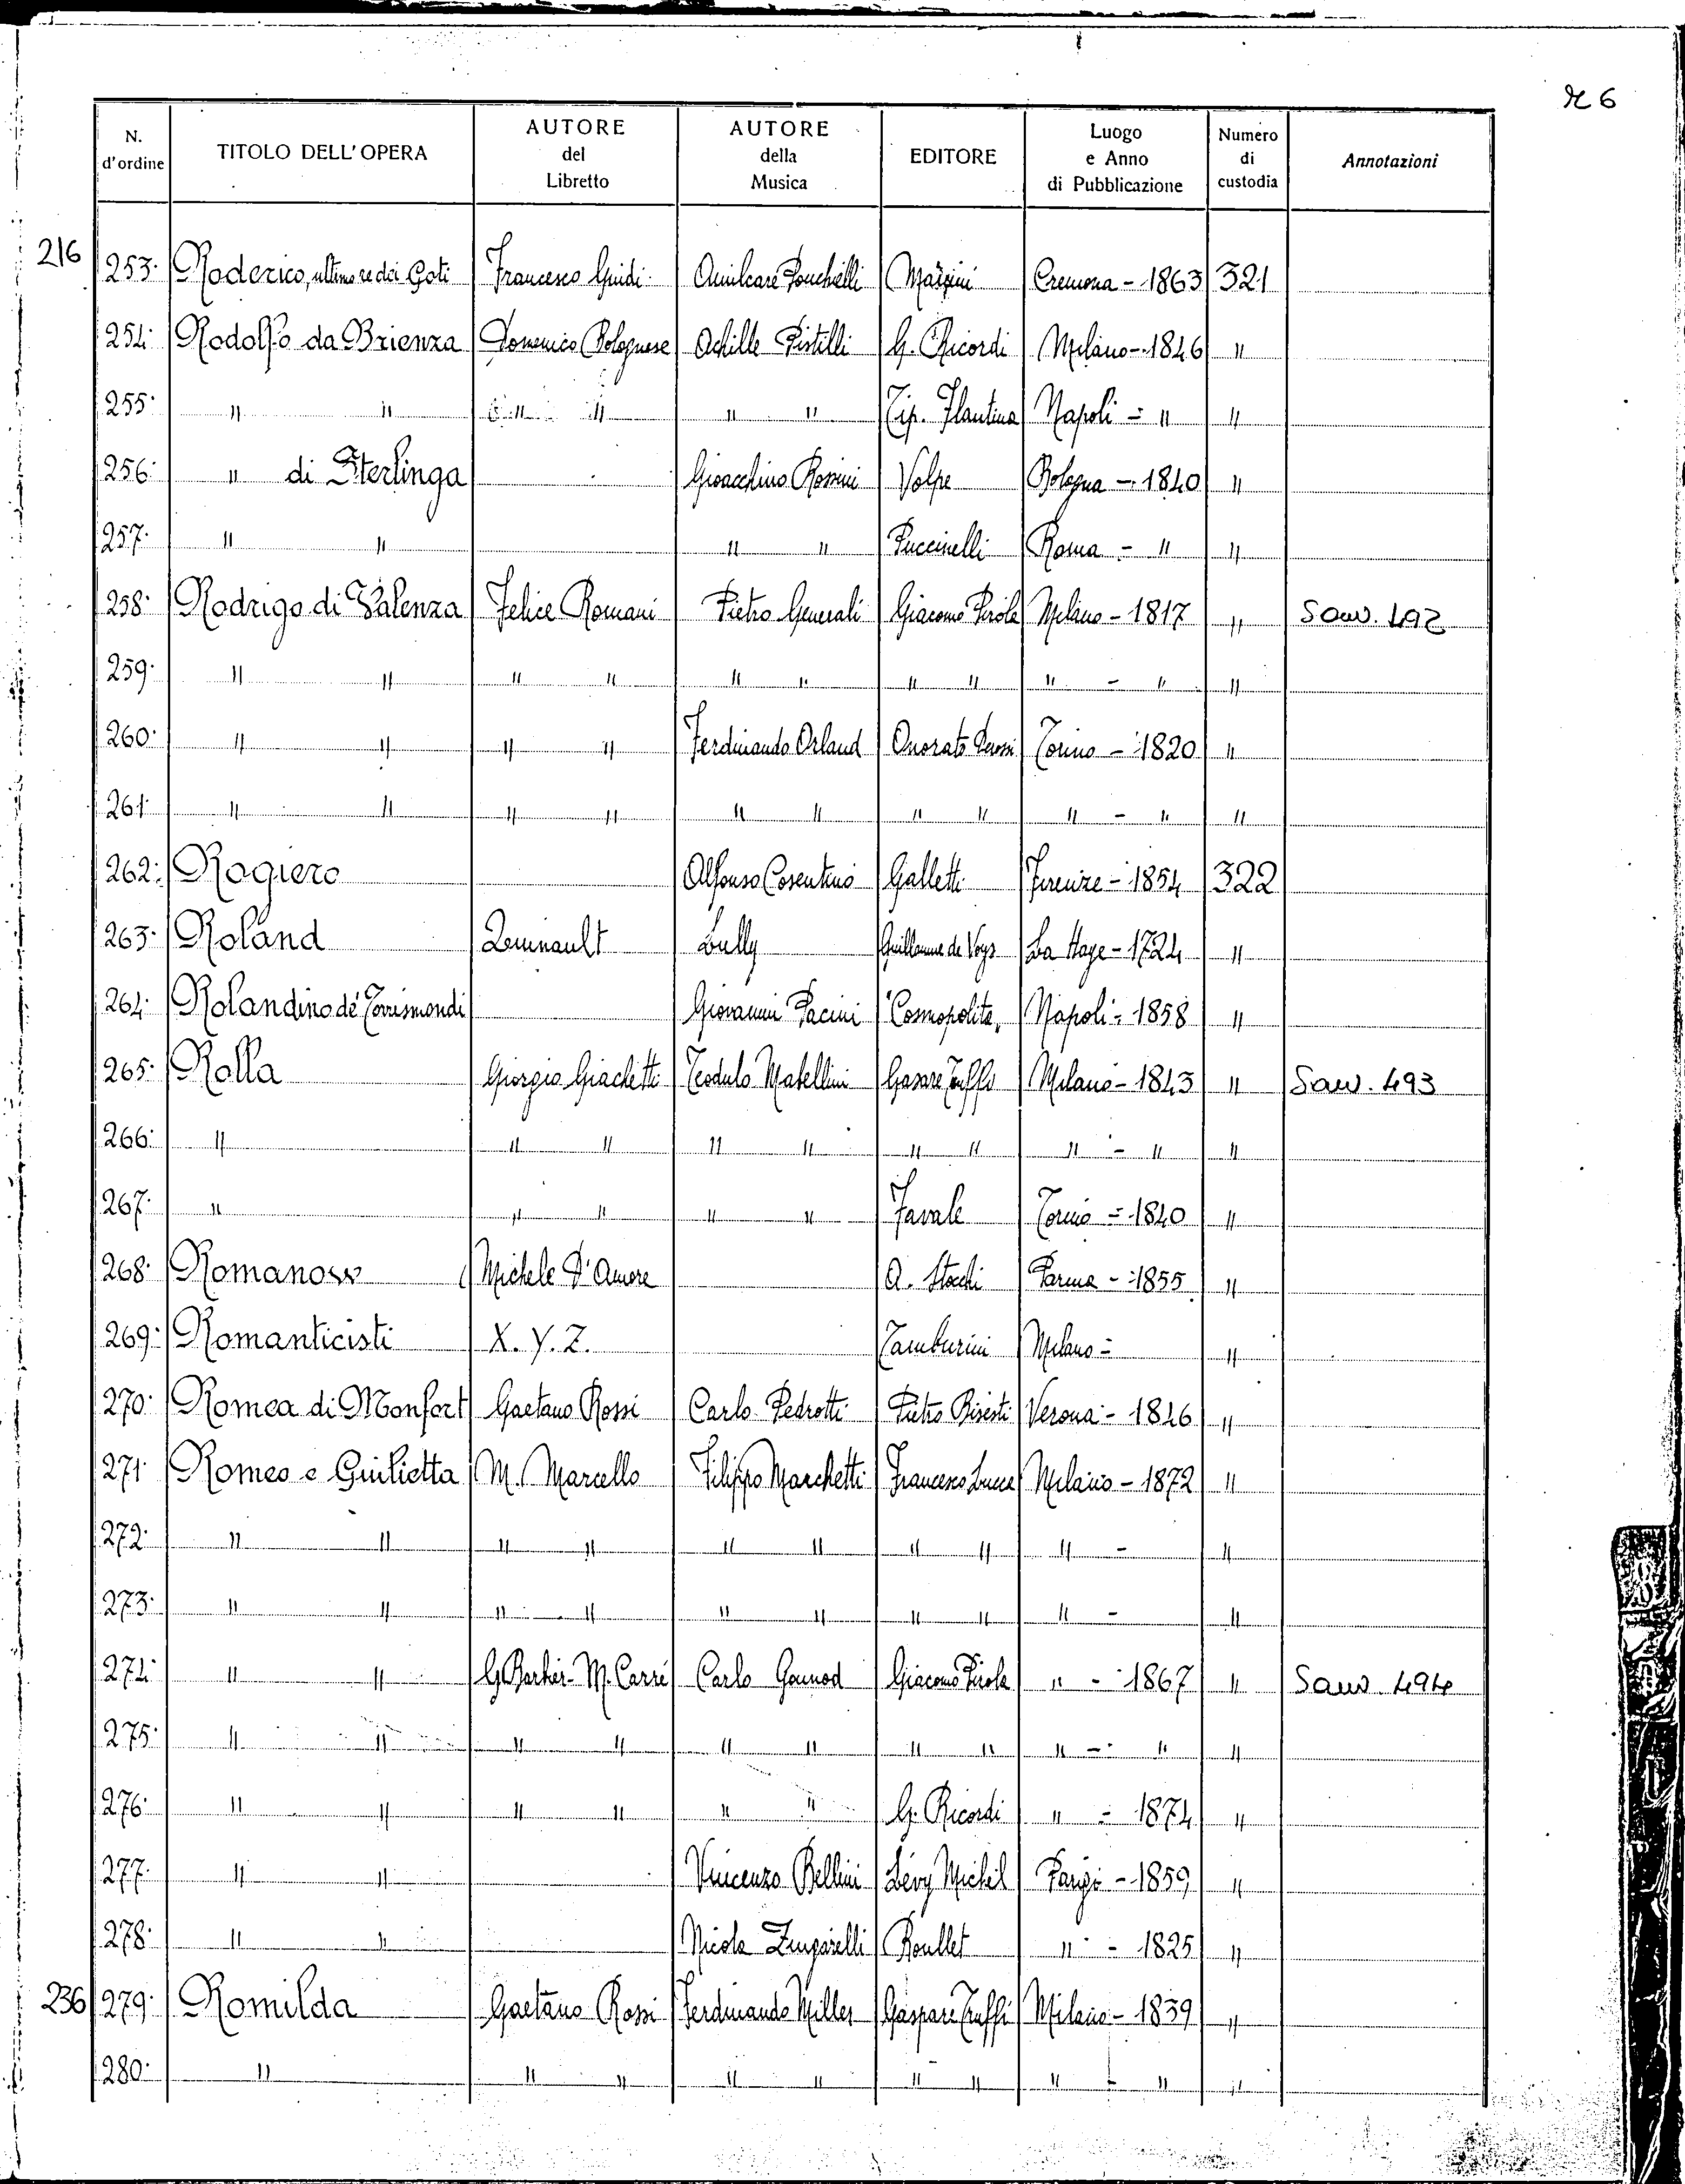 R 6
N. d'ordine | TITOLO DELL'OPERA | AUTORE del Libretto | AUTORE della Musica | EDITORE | Luogo e Anno di Pubblicazione | Numero di custodia | Annotazioni
216 | 253. | Roderico, ultimo re dei Goti | Francesco Guidi | Amilcare Ponchielli | Manini | Cremona - 1863 | 321
254. | Rodolfo da Brienza | Domenico Bolognese | Achille Pistilli | G. Ricordi | Milano - 1846 | "
255. | " " | " " | " " | Tip. Flautina | Napoli - " | "
256. | " di Sterlinga | | Gioacchino Rossini | Volpe | Bologna - 1840 | "
257. | " " | | " " | Puccinelli | Roma - " | "
258. | Rodrigo di Valenza | Felice Romani | Pietro Generali | Giacomo Pirola | Milano - 1817 | " | Sauv. 492
259. | " " | " " | " " | " " | " - " | "
260. | " " | " " | Ferdinando Orland | Onorato Derossi | Torino - 1820 | "
261. | " " | " " | " " | " " | " - " | "
262. | Rogiero | | Alfonso Cosentino | Galletti | Firenze - 1854 | 322
263. | Roland | Quinault | Lully | Guillaume de Voys | La Haye - 1724 | "
264. | Rolandino de' Torrismondi | | Giovanni Pacini | Cosmopolita | Napoli - 1858 | "
265. | Rolla | Giorgio Giachetti | Teodulo Mabellini | Gaspare Truffi | Milano - 1843 | " | Sauv. 493
266. | " | " " | " " | " " | " - " | "
267. | " | " " | " " | Favale | Torino - 1840 | "
268. | Romanow | Michele D'Amore | | A. Stocchi | Parma - 1855 | "
269. | Romanticisti | X. Y. Z. | | Tamburini | Milano - | "
270. | Romea di Monfort | Gaetano Rossi | Carlo Pedrotti | Pietro Bisesti | Verona - 1846 | "
271 | Romeo e Giulietta | M. Marcello | Filippo Marchetti | Francesco Lucca | Milano - 1872 | "
272. | " " | " " | " " | " " | " - | "
273. | " " | " " | " " | " " | " - | "
274. | " " | G. Barbier - M. Carré | Carlo Gounod | Giacomo Pirola | " - 1867 | " | Sauv. 494
275. | " " | " " | " " | " " | " - " | "
276. | " " | " " | " " | G. Ricordi | " - 1874 | "
277. | " " | | Vincenzo Bellini | Lévy Michel | Parigi - 1859 | "
278. | " " | | Nicola Zingarelli | Roullet | " - 1825 | "
236 | 279. | Romilda | Gaetano Rossi | Ferdinando Hiller | Gaspare Truffi | Milano - 1839 | "
280. | " | " " | " " | " " | " - " | "